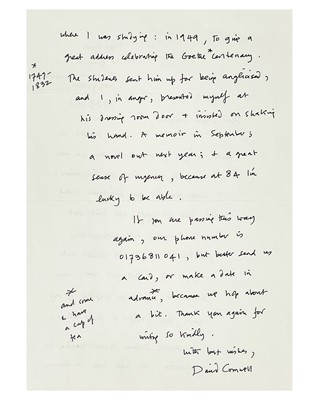 where I was studying : in 1949, to give a
great address celebrating the Goethe * centenary.
* 1749-
1832
The students sent him up for being anglicised,
and I, in anger, presented myself at
his dressing room door + insisted on shaking
his hand. A memoir in September;
a novel out next year; + a great
sense of urgency, because at 84 I'm
lucky to be able.
If you are passing this way
again, our phone number is
01736811041, but better send us
a card, or make a date in
advance*, because we hop about
a bit. Thank you again for
writing so kindly.
* and come
& have
a cup of
tea
With best wishes,
David Cornwell